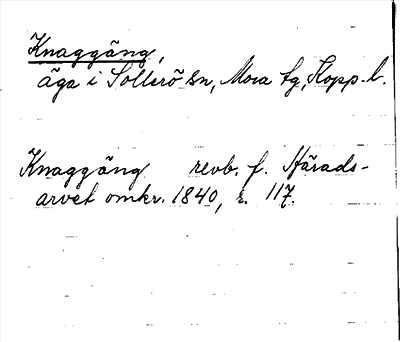 Knaggäng,
äga i Sollerö sn, Mora tg, Kopp. l.
Knaggäng revb. f. Härads-
arvet omkr. 1840, r. 117.